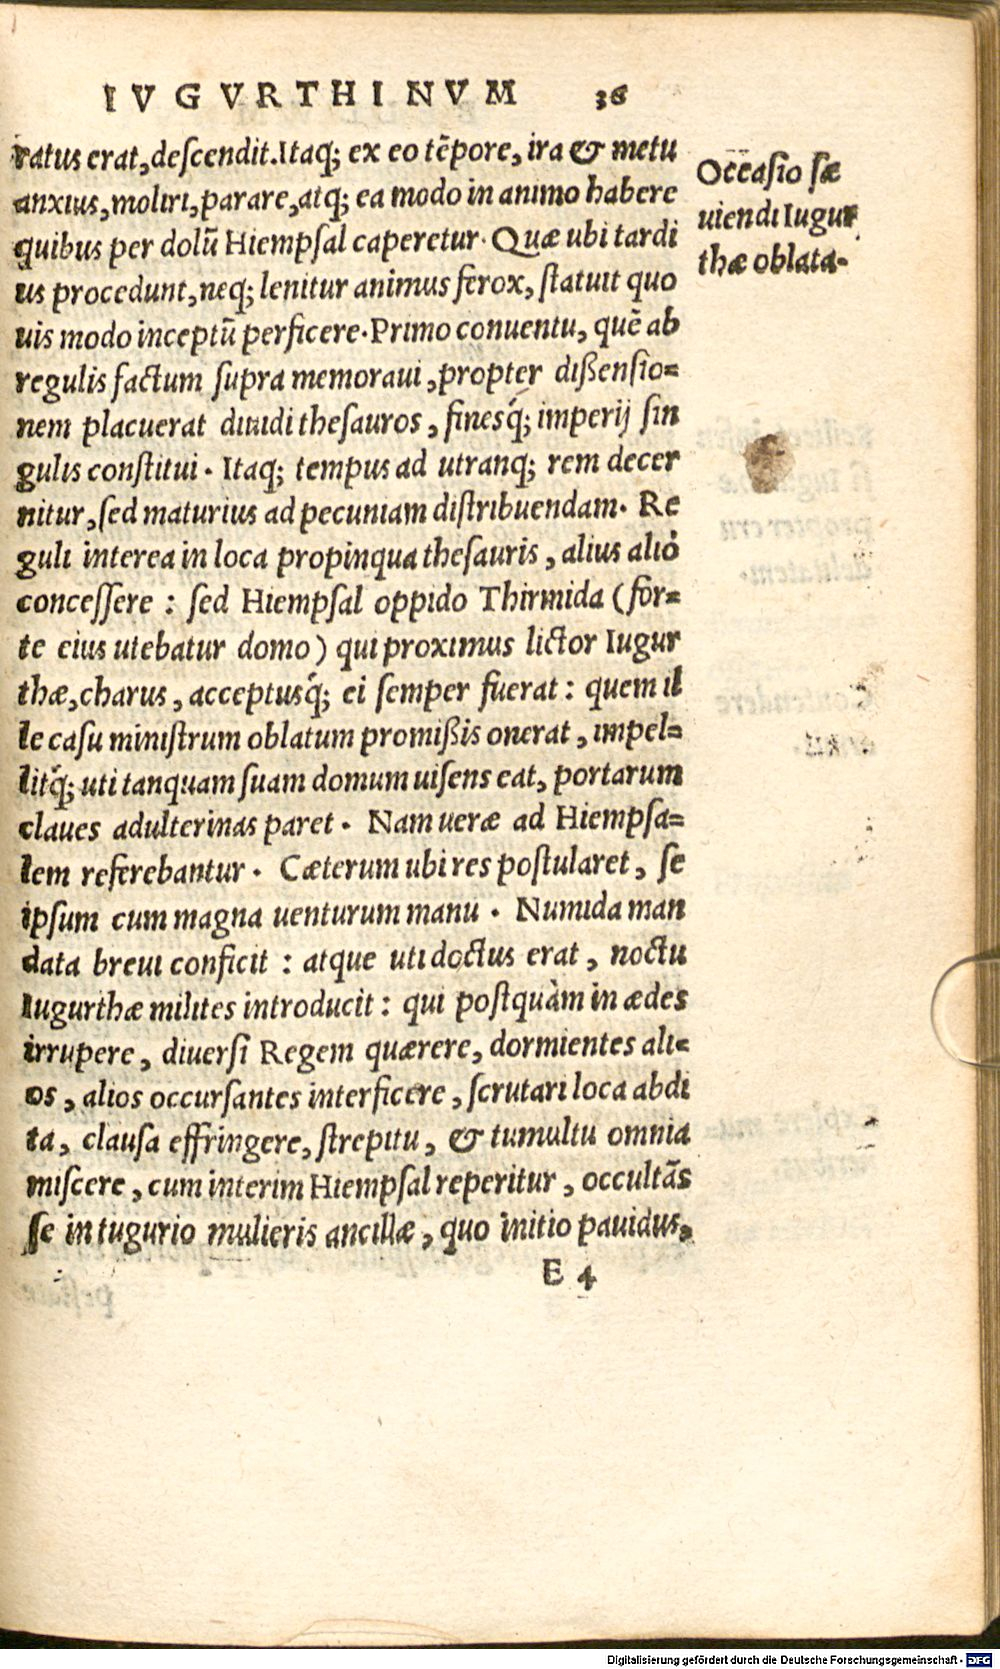 IVGVRTHINVM 36
ratus erat, descendit. Itaq; ex eo tẽpore, ira & metu
anxius, moliri, parare, atq; ea modo in animo habere
quibus per dolũ Hiempsal caperetur. Quæ ubi tardi
us procedunt, neq; lenitur animus ferox, statuit quo
uis modo inceptũ perficere. Primo conuentu, quẽ ab
regulis factum supra memoraui, propter dißensio=
nem placuerat diuidi thesauros, finesq́; imperij sin
gulis constitui. Itaq; tempus ad utranq; rem decer
nitur, sed maturius ad pecuniam distribuendam. Re
guli interea in loca propinqua thesauris, alius aliò
concessere : sed Hiempsal oppido Thirmida (for=
te eius utebatur domo) qui proximus lictor Iugur
thæ, charus, acceptusq́; ei semper fuerat : quem il
le casu ministrum oblatum promißis onerat, impel=
litq́; uti tanquam suam domum uisens eat, portarum
claues adulterinas paret. Nam ueræ ad Hiempsa=
lem referebantur. Cæterum ubi res postularet, se
ipsum cum magna uenturum manu. Numida man
data breui conficit : atque uti doctus erat, noctu
Iugurthæ milites introducit : qui postquàm in ædes
irrupere, diuersi Regem quærere, dormientes ali=
os, alios occursantes interficere, scrutari loca abdi
ta, clausa effringere, strepitu, & tumultu omnia
miscere, cum interim Hiempsal reperitur, occultãs
se in tugurio mulieris ancillæ, quo initio pauidus,
E 4
Occasio sæ
uiendi Iugur
thæ oblata.
Digitalisierung gefördert durch die Deutsche Forschungsgemeinschaft - DFG